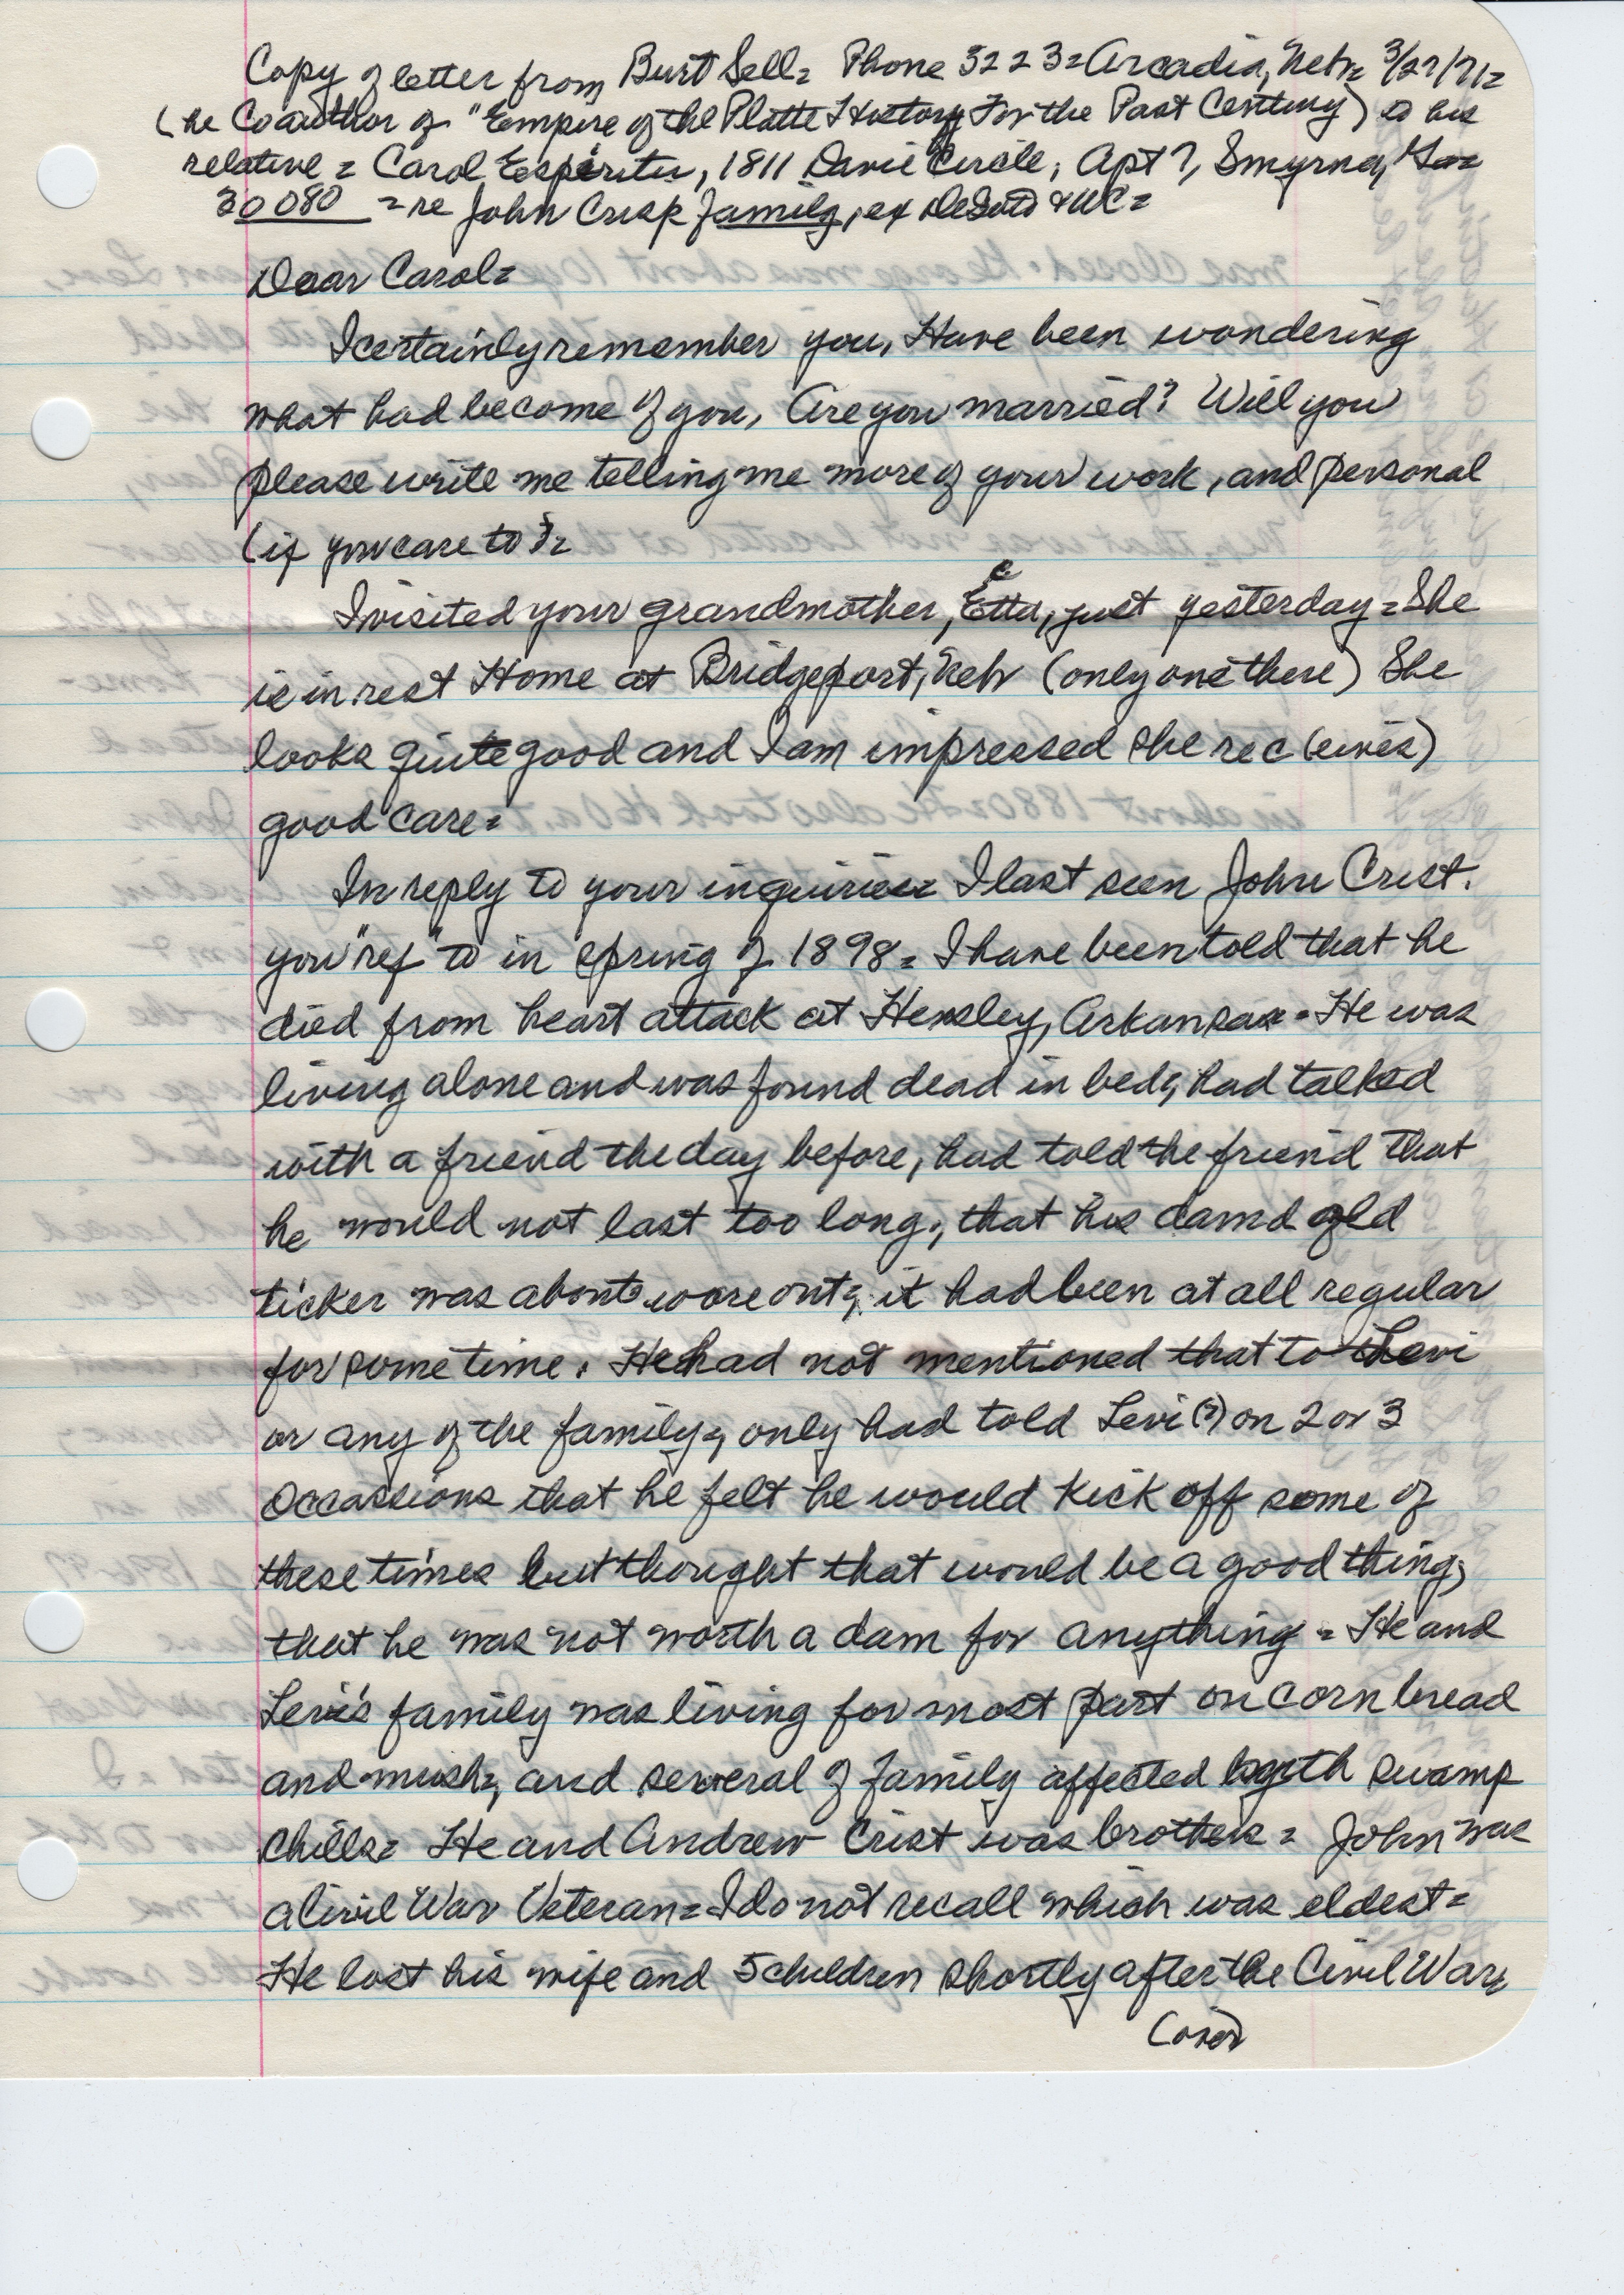 Copy of letter from Burt Sell= Phone 3223= Arcadia, Nebr= 3/27/71=
(he Coauthor of "Empire of the Platte History For the Past Century) to his
relative = Carol Espiritu, 1811 Davie Circle, Apt 7, Smyrna, Ga=
30080 = re John Crisp family, ex DeSoto & WC=
Dear Carol=
I certainly remember you, Have been wondering
what had become of you, Are you married? Will you
please write me telling me more of your work, and personal
(if you care to)=
I visited your grandmother, Etta, just yesterday= She
is in rest Home at Bridgeport, Nebr (only one there) She
looks quite good and I am impressed she rec(eives)
good care=
In reply to your inquiries= I last seen John Crist.
you "ref" to in spring of 1898= I have been told that he
died from heart attack at Hensley, Arkansas= He was
living alone and was found dead in bed; had talked
with a friend the day before, had told the friend that
he would not last too long, that his damd old
ticker was about wore out; it had been at all regular
for some time. He had not mentioned that to Levi
or any of the family; only had told Levi(?) on 2 or 3
occassions that he felt he would kick off some of
these times but thought that would be a good thing;
that he was not worth a dam for anything = He and
Levi's family was living for most part on corn bread
and mush; and several of family affected with swamp
chills= He and Andrew Crist was brothers = John was
a Civil War Veteran= I do not recall which was eldest=
He lost his wife and 5 children shortly after the Civil War;
(over)